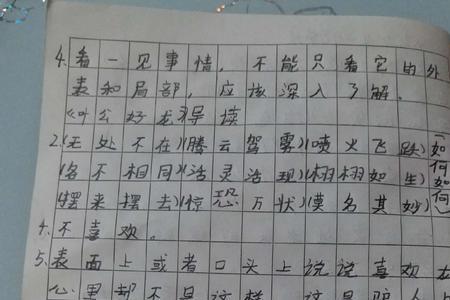 4.看一见事情，不能只看它的外
表和局部，应该深入了解。
《叶公好龙》导读
2.(无处不在)(腾云驾雾)(喷火飞跃)(如何如何)
(各不相同)(活灵活现)(栩栩如生)
(摆来摆去)(惊恐万状)(莫名其妙)
4.不喜欢。
5.表面上或者口头上说说喜欢，在
心里都不是这样，这是骗人